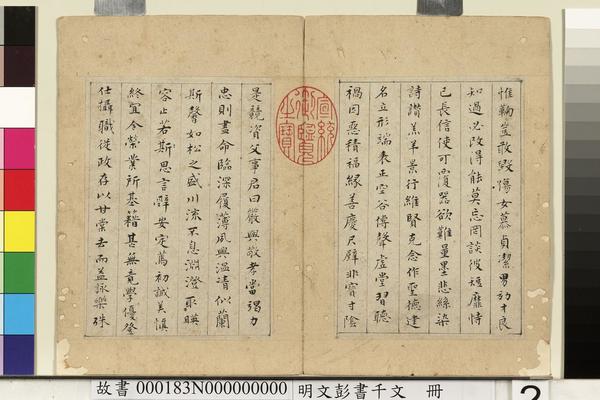 惟鞠豈敢毀傷女慕貞潔男効才良
知過必改得能莫忘罔談彼短靡恃
己長信使可覆器欲難量墨悲絲染
詩讚羔羊景行維賢克念作聖德建
名立形端表正空谷傳聲虛堂習聽
禍因惡積福緣善慶尺璧非寶寸陰
是競資父事君曰嚴與敬孝當竭力
忠則盡命臨深履薄夙興溫凊似蘭
斯馨如松之盛川流不息淵澄取暎
容止若斯思言辭安定篤初誠美慎
終宜令榮業所基籍甚無竟學優登
仕攝職從政存以甘棠去而益詠樂殊
宣統御覽之寶
故書 000183N000000000 明文彭書千文 冊
2